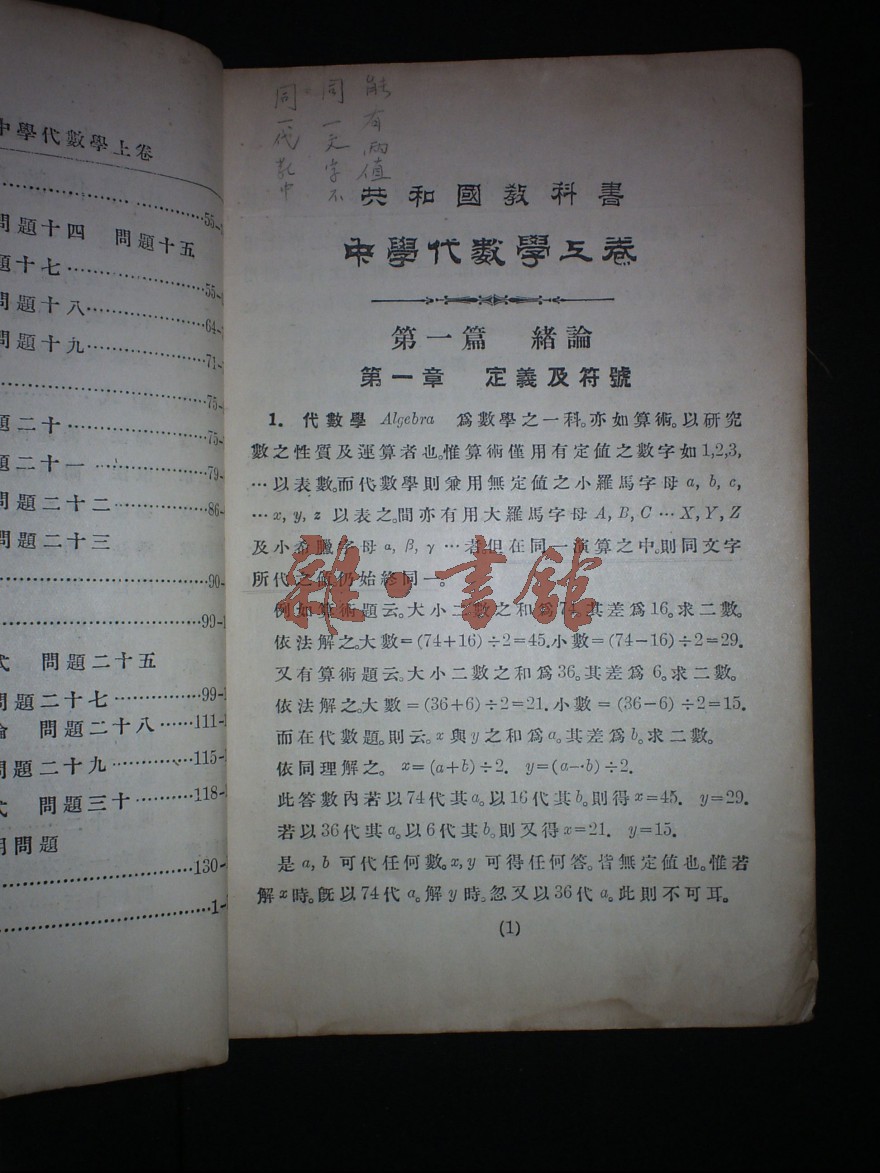 中學代數學上卷
55-
問題十四 問題十五
題十七 55-
問題十八 64-
問題十九 71-
75-
題二十 75-
題二十一 79-
題二十二 86-
問題二十三
90-
99-1
式 問題二十五
問題二十七 99-1
問題二十八 111-1
問題二十九 115-1
式 問題三十 118-1
用問題
130-
1-
同一代數中
同一文字不
能有兩值
共和國教科書
中學代數學上卷
第一篇 緒論
第一章 定義及符號
1. 代數學 Algebra 爲數學之一科。亦如算術。以研究
數之性質及運算者也。惟算術僅用有定値之數字如1,2,3,
…以表數。而代數學則兼用無定値之小羅馬字母 a, b, c,
… x, y, z 以表之。間亦有用大羅馬字母 A, B, C … X, Y, Z
及小希臘字母 α, β, γ …者。但在同一演算之中。則同文字
所代之値仍始終同一。
例如算術題云。大小二數之和爲74。其差爲16。求二數。
依法解之。大數=(74+16)÷2=45.小數=(74-16)÷2=29.
又有算術題云。大小二數之和爲36。其差爲6。求二數。
依法解之。大數=(36+6)÷2=21.小數=(36-6)÷2=15.
而在代數題。則云。x與y之和爲a。其差爲b。求二數。
依同理解之。 x=(a+b)÷2. y=(a-b)÷2.
此答數內若以74代其a。以16代其b。則得x=45. y=29.
若以36代其a。以6代其b。則又得x=21. y=15.
是 a, b 可代任何數。x, y 可得任何答。皆無定値也。惟若
解x時。旣以74代a。解y時。忽又以36代a。此則不可耳。
(1)
雜·書館